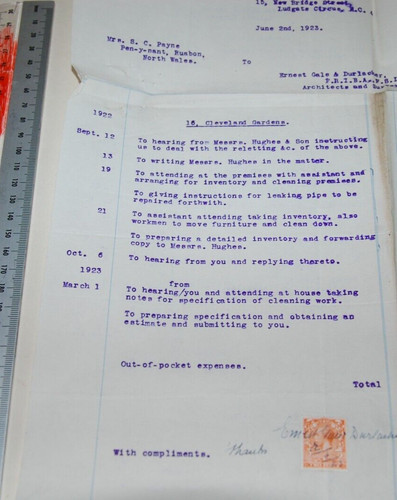 15, New Bridge Street,
Ludgate Circus, E.C.
June 2nd, 1923.
Mrs. S. C. Payne
Pen-y-nant, Ruabon,
North Wales.
To
Ernest Gale & Durlacher,
F.R.I.B.A. F.S.I.
Architects and
1922
16, Cleveland Gardens.
Sept. 12 To hearing from Messrs. Hughes & Son instructing
us to deal with the reletting &c. of the above.
13 To writing Messrs. Hughes in the matter.
19 To attending at the premises with assistant and
arranging for inventory and cleaning premises.
To giving instructions for leaking pipe to be
repaired forthwith.
21 To assistant attending taking inventory, also
workmen to move furniture and clean down.
To preparing a detailed inventory and forwarding
copy to Messrs. Hughes.
Oct. 6 To hearing from you and replying thereto.
1923
from
March 1 To hearing/you and attending at house taking
notes for specification of cleaning work.
To preparing specification and obtaining an
estimate and submitting to you.
Out-of-pocket expenses.
Total
With compliments.
Thanks